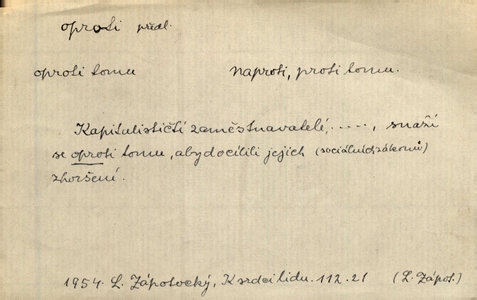 oproti předl.
oproti tomu naproti, proti tomu.
Kapitalističtí zaměstnavatelé, ....., snaží
se oproti tomu, aby docílili jejich (sociálních zákonů)
zhoršení.
1954. L. Zápotocký, K srdci lidu. 112. 21 (L. Zápot.)